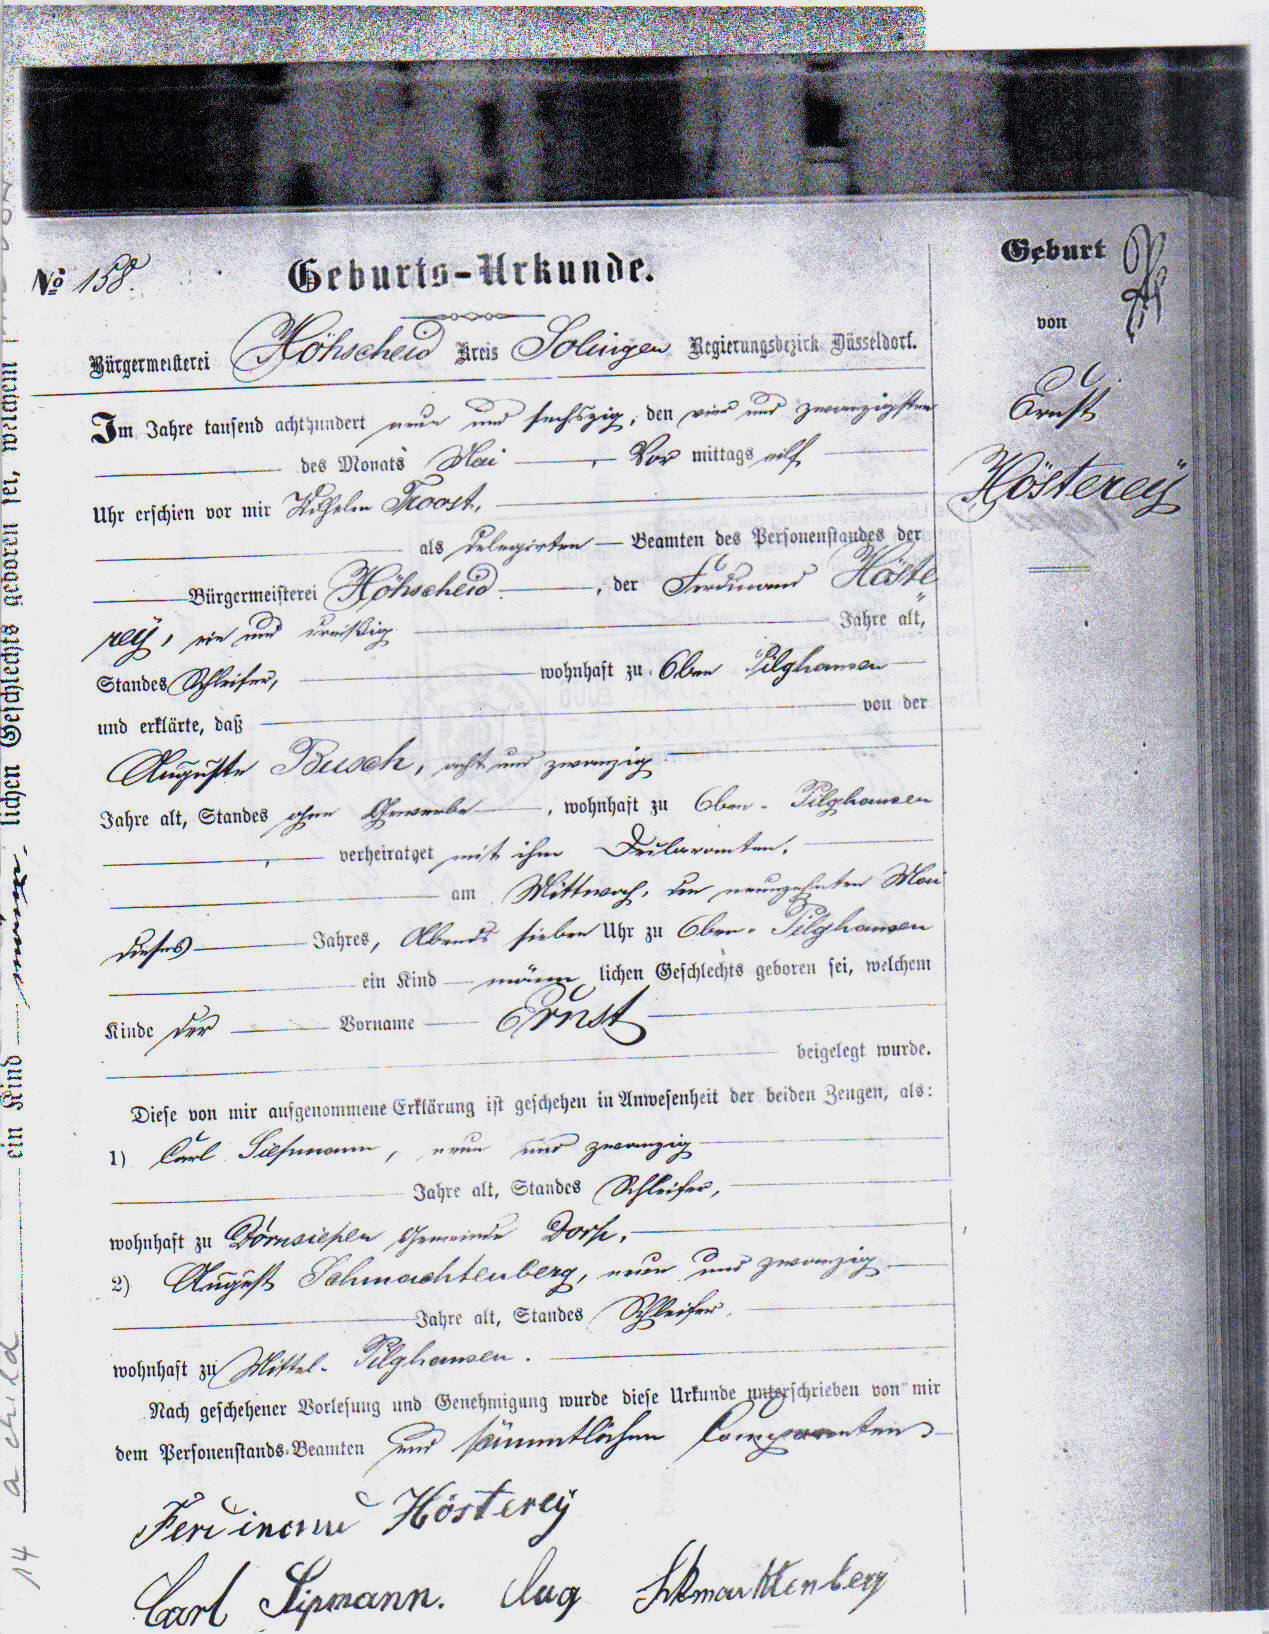 No 158.
Geburts-Urkunde.
Bürgermeisterei Höhscheid Kreis Solingen Regierungsbezirk Düsseldorf.
Im Jahre tausend achthundert neun und sechszig, den vier und zwanzigsten
des Monats Mai, Vor mittags eilf
Uhr erschien vor mir Wilhelm Troost,
als delegirten Beamten des Personenstandes der
Bürgermeisterei Höhscheid, der Ferdinand Höste
rey, ein und dreißig Jahre alt,
Standes Schleifer, wohnhaft zu Oben Pilghausen
und erklärte, daß von der
Auguste Busch, acht und zwanzig
Jahre alt, Standes ohne Gewerbe, wohnhaft zu Oben-Pilghausen
verheiratet mit ihm Declaranten,
am Mittwoch, den neunzehnten Mai
dieses Jahres, Abends sieben Uhr zu Oben-Pilghausen
ein Kind männlichen Geschlechts geboren sei, welchem
Kinde der Vorname Ernst
beigelegt wurde.
Diese von mir aufgenommene Erklärung ist geschehen in Anwesenheit der beiden Zeugen, als:
1) Carl, neun und zwanzig
Jahre alt, Standes Schleifer,
wohnhaft zu Dörnsiepen Gemeinde Dorp.
2) August Schmachtenberg, neun und zwanzig
Jahre alt, Standes Schleifer,
wohnhaft zu Mittel-Pilghausen.
Nach geschehener Vorlesung und Genehmigung wurde diese Urkunde unterschrieben von mir
dem Personenstands-Beamten und sämmtlichen Comparenten
Ferdinand Hösterey
Carl Sipmann. Aug Schmachtenberg
Geburt
von
Ernst
Hösterey
ein Kind männ-lichen Geschlechts geboren sei, welchem
14 a child